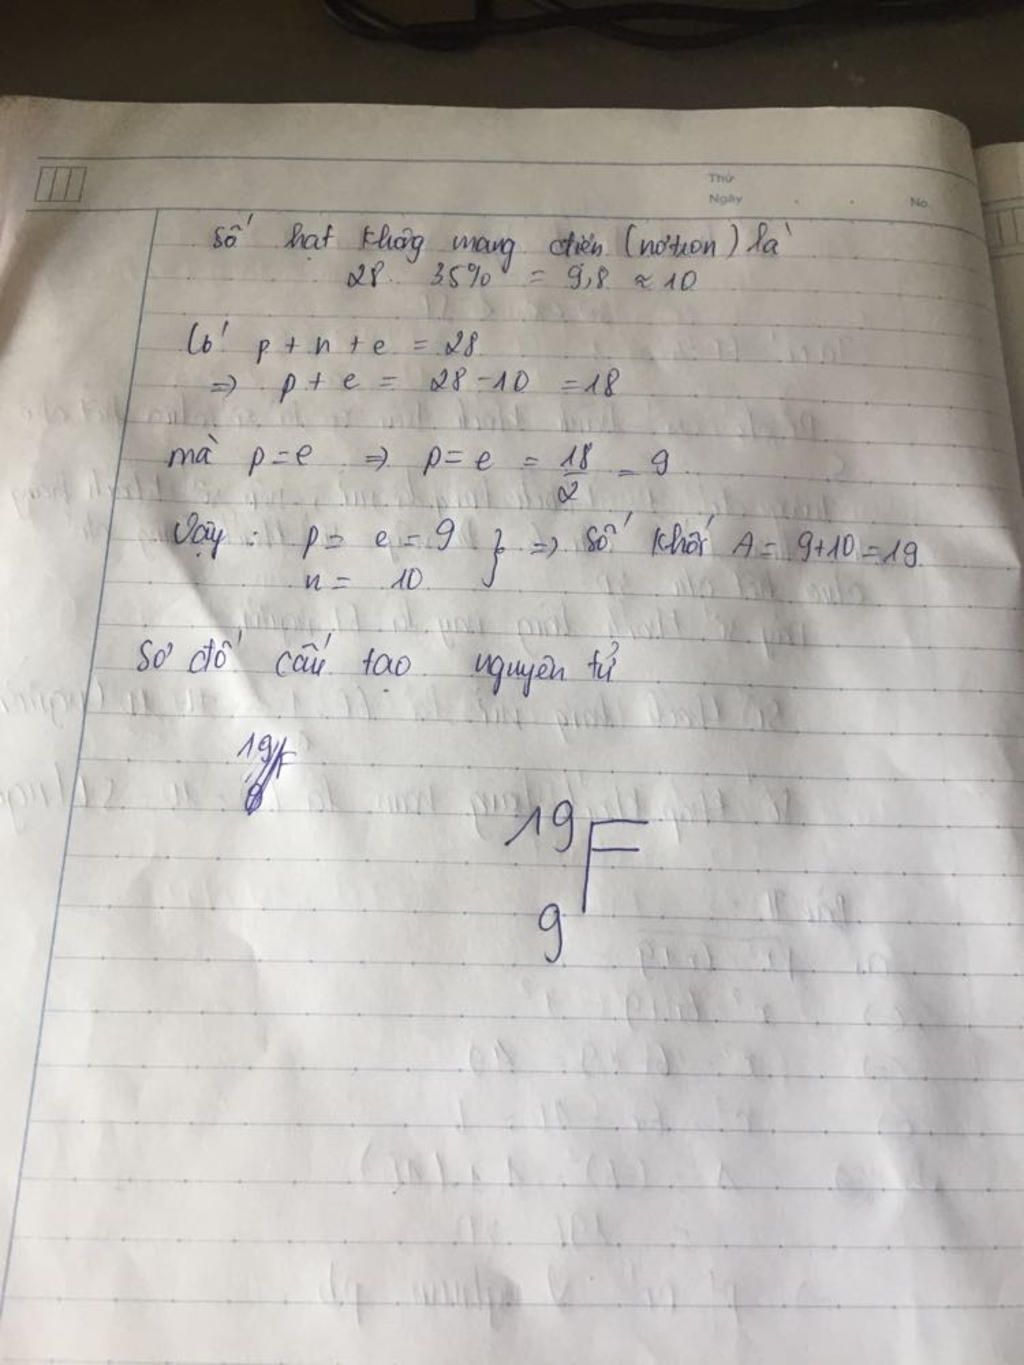 Thứ
Ngày . . No.
Số hạt không mang điện (nơtron) là
28. 35% = 9,8 ≈ 10
Có p + n + e = 28
=> p + e = 28 - 10 = 18
mà p = e => p = e = 18/2 = 9
Vậy : p = e = 9 } => số khối A = 9+10 = 19
n = 10
Sơ đồ cấu tạo nguyên tử
19 F
19 F
9